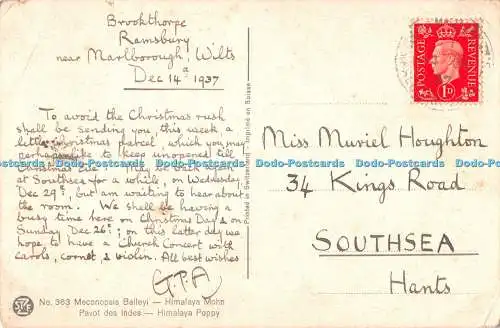 Brookthorpe
Ramsbury
near Marlborough, Wilts
Dec 14a 1937
To avoid the Christmas rush
shall be sending you, this week a
little Christmas parcel, which you may
perhaps like to keep unopened till
Christmas Eve. May be back again
at Southsea for a while, on Wednesday
Dec 29th, but am waiting to hear about
the room. We shall be having a
busy time here on Christmas Day & on
Sunday Dec 26th; on this latter day we
hope to have a Church Concert with
carols, cornet, & violin. All best wishes
G.P.A
No. 363 Meconopsis Baileyi — Himalaya Mohn
Pavot des Indes — Himalaya Poppy
Printed in Switzerland. Imprimé en Suisse
POSTAGE
REVENUE
1D
Miss Muriel Houghton
34 Kings Road
SOUTHSEA
Hants
Dodo-Postcards Dodo-Postcards Dodo-Postcards Dodo-Postcards Dodo-Postcards